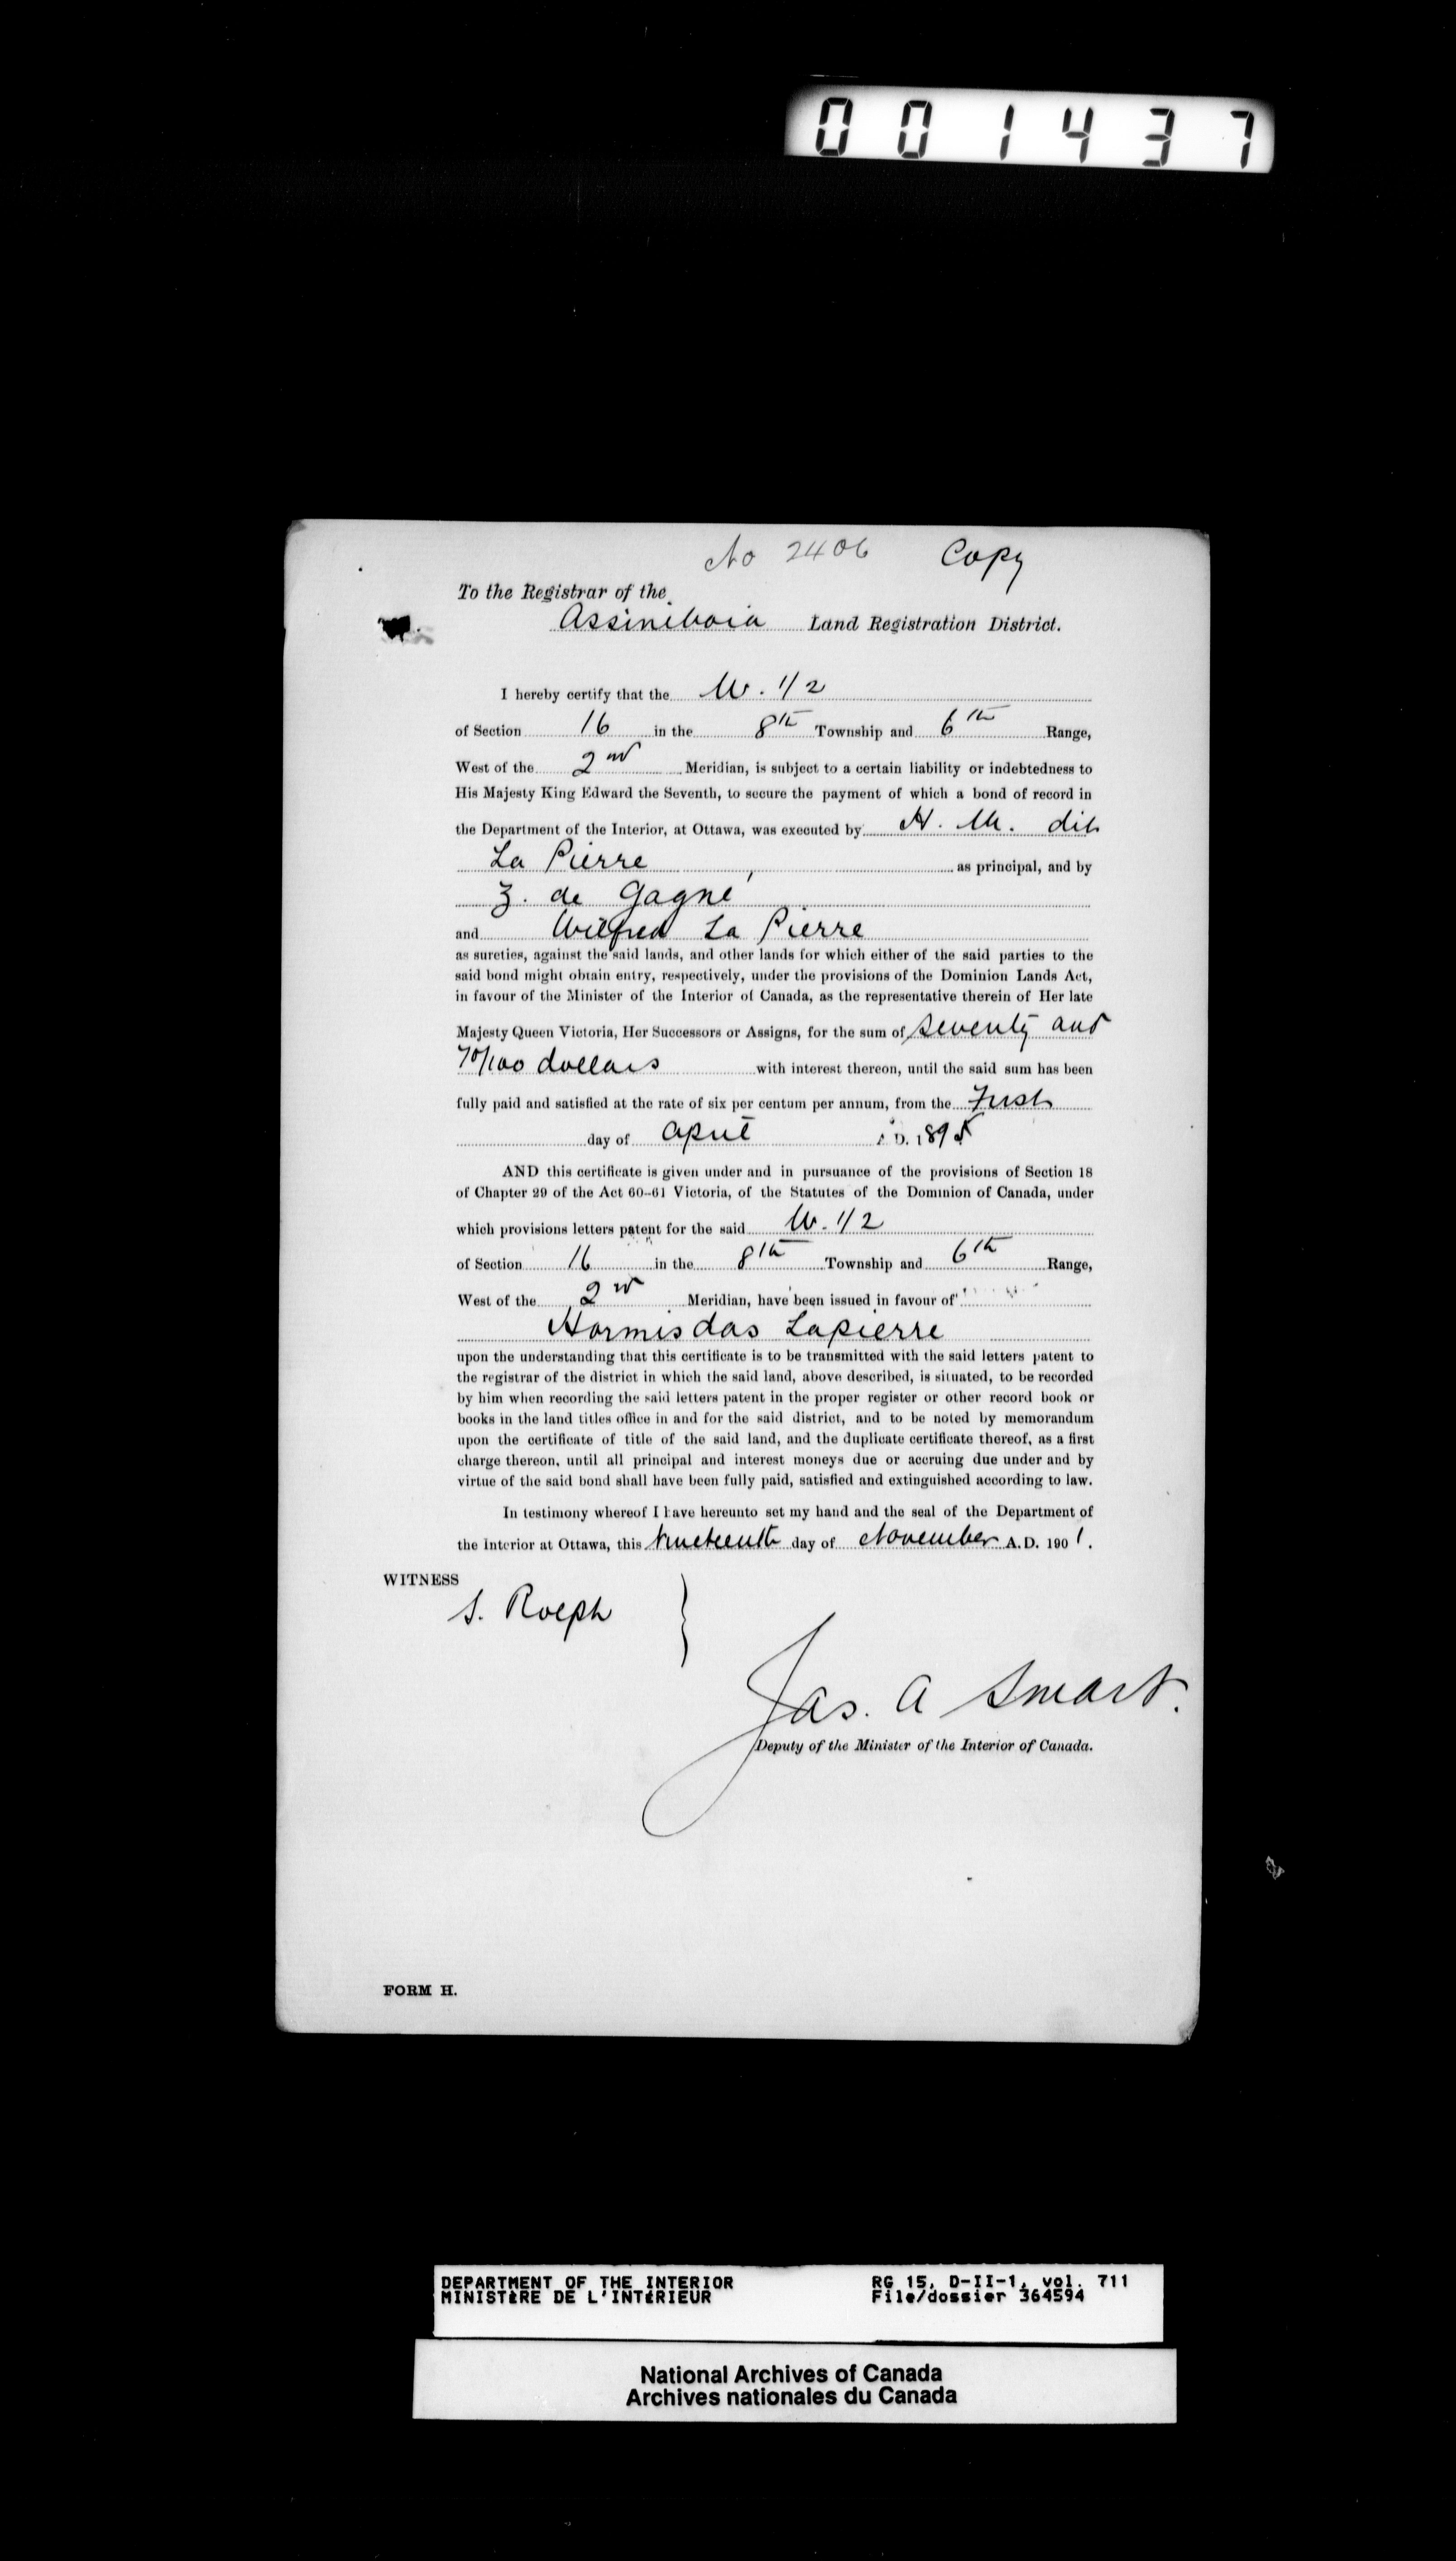 001437
No 2406 Copy
To the Registrar of the
Assiniboia Land Registration District.
I hereby certify that the W. 1/2
of Section 16 in the 8th Township and 6th Range,
West of the 2nd Meridian, is subject to a certain liability or indebtedness to
His Majesty King Edward the Seventh, to secure the payment of which a bond of record in
the Department of the Interior, at Ottawa, was executed by H. M. dit
La Pierre as principal, and by
Z. de Gagné
and Wilfred La Pierre
as sureties, against the said lands, and other lands for which either of the said parties to the
said bond might obtain entry, respectively, under the provisions of the Dominion Lands Act,
in favour of the Minister of the Interior of Canada, as the representative therein of Her late
Majesty Queen Victoria, Her Successors or Assigns, for the sum of seventy and
70/100 dollars with interest thereon, until the said sum has been
fully paid and satisfied at the rate of six per centum per annum, from the First
day of April A.D. 1895
AND this certificate is given under and in pursuance of the provisions of Section 18
of Chapter 29 of the Act 60-61 Victoria, of the Statutes of the Dominion of Canada, under
which provisions letters patent for the said W. 1/2
of Section 16 in the 8th Township and 6th Range,
West of the 2nd Meridian, have been issued in favour of
Hormisdas Lapierre
upon the understanding that this certificate is to be transmitted with the said letters patent to
the registrar of the district in which the said land, above described, is situated, to be recorded
by him when recording the said letters patent in the proper register or other record book or
books in the land titles office in and for the said district, and to be noted by memorandum
upon the certificate of title of the said land, and the duplicate certificate thereof, as a first
charge thereon, until all principal and interest moneys due or accruing due under and by
virtue of the said bond shall have been fully paid, satisfied and extinguished according to law.
In testimony whereof I have hereunto set my hand and the seal of the Department of
the Interior at Ottawa, this Nineteenth day of November A.D. 1901.
WITNESS
S. Rolph
Jas. A Smart.
Deputy of the Minister of the Interior of Canada.
FORM H.
DEPARTMENT OF THE INTERIOR RG 15, D-II-1, vol. 711
MINISTÈRE DE L'INTÉRIEUR File/dossier 364594
National Archives of Canada
Archives nationales du Canada